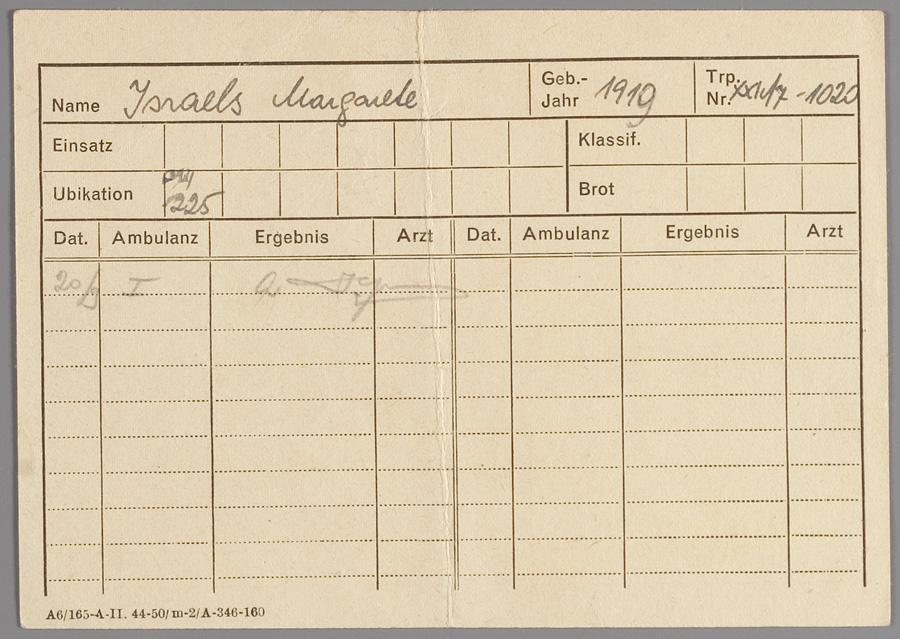 Name Israels Margarete Geb.-Jahr 1919 Trp. Nr. XXIV/7-1020
Einsatz Klassif.
Ubikation 225 Brot
Dat. Ambulanz Ergebnis Arzt Dat. Ambulanz Ergebnis Arzt
20/9 I
A6/165-A-II. 44-50/m-2/A-346-160